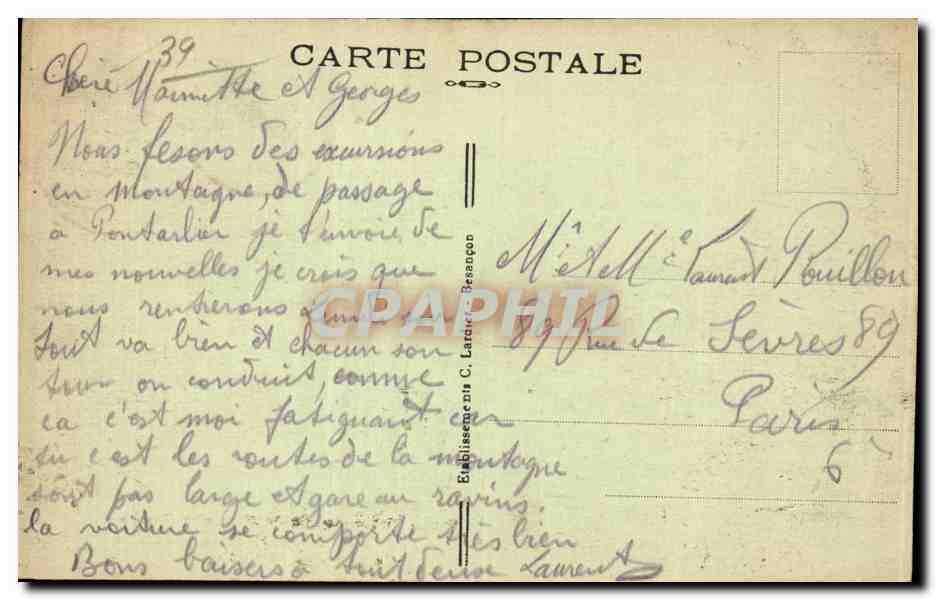 39
CARTE POSTALE
Chere Maimitte et Georges
Nous fesons des excursions
en montagne, de passage
a Pontarlier je t'envoie de
mes nouvelles je crois que
nous rentrerons
tout va bien et chacun son
tour on conduit, comme
ca c'est moi fatiguant car
tu c est les routes de la montagne
sont pas large et gare au ravins.
la voiture se comporte très bien
Bons baisers a tout deux Laurent
Etablissements C. Lardier - Besançon
Mr et Me Laurent Pouillon
89 rue de Sèvres 89
Paris
6e
CPAPHIL